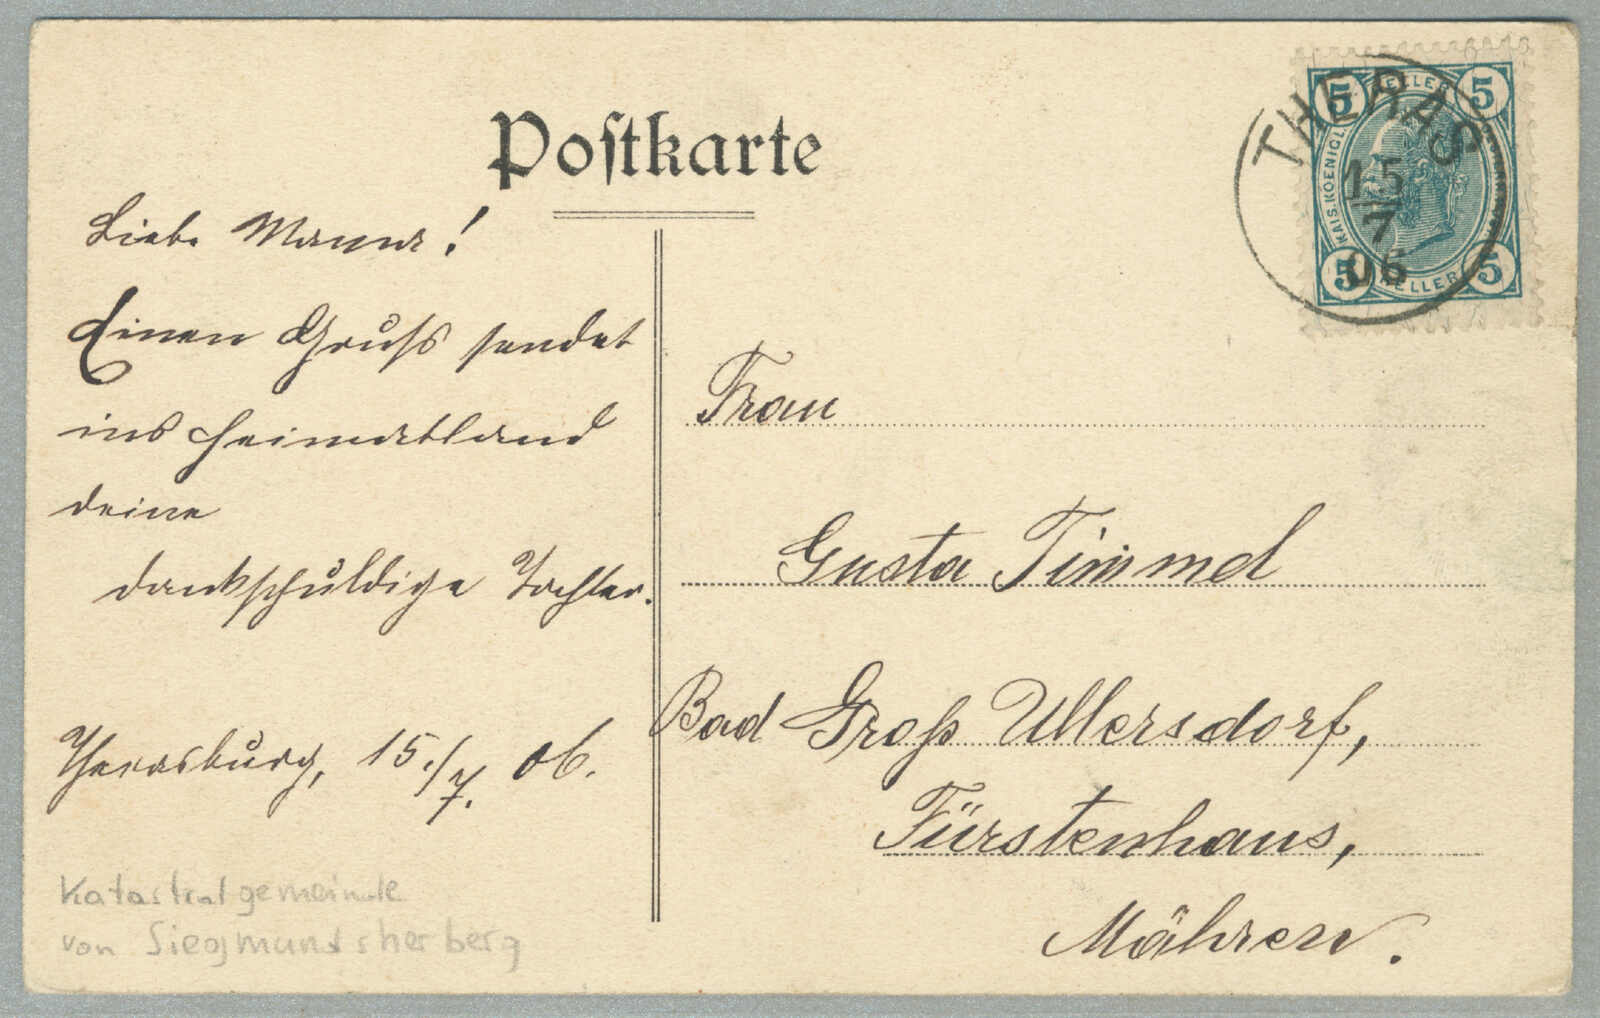 Postkarte
THERAS
15
7
06
5 HELLER 5
KAIS. KOENIGL.
5 HELLER 5
Liebe Mama!
Einen Gruß sendet
ins Heimatland
deine
dankschuldige Tochter.
Therasburg, 15./7. 06.
Frau
Gusta Timmel
Bad Groß Ullersdorf,
Fürstenhaus,
Mähren.
Katastralgemeinde
von Siegmundsherberg